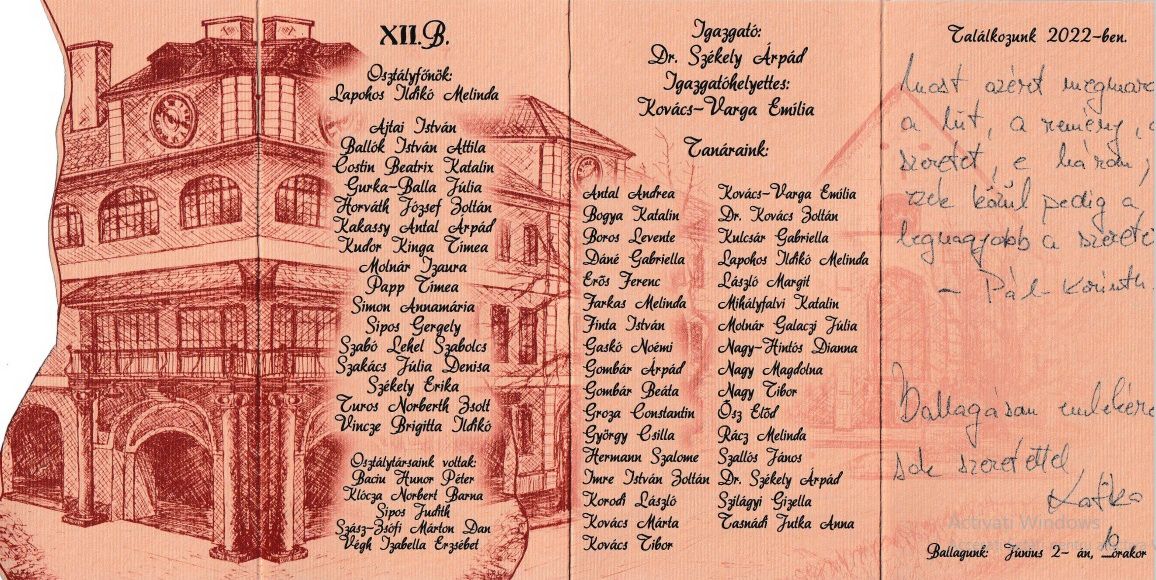 XII.B.
Osztályfőnök:
Lapohos Ildikó Melinda
Ajtai István
Ballók István Attila
Costin Beatrix Katalin
Gurka-Balla Júlia
Horváth József Zoltán
Kakassy Antal Arpád
Kudor Kinga Tímea
Molnár Izaura
Papp Tímea
Simon Annamária
Sipos Gergely
Szabó Lehel Szabolcs
Szakács Júlia Denisa
Székely Erika
Turos Norberth Zsolt
Vincze Brigitta Ildikó
Osztálytársaink voltak:
Baciu Hunor Péter
Klócza Norbert Barna
Sipos Judith
Szász-Zsófi Márton Dan
Végh Izabella Erzsébet
Igazgató:
Dr. Székely Árpád
Igazgatóhelyettes:
Kovács-Varga Emília
Tanáraink:
Antal Andrea
Bogya Katalin
Boros Levente
Dáné Gabriella
Erős Ferenc
Farkas Melinda
Finta István
Gaskó Noémi
Gombár Árpád
Gombár Beáta
Groza Constantin
György Csilla
Hermann Szalome
Imre István Zoltán
Korodi László
Kovács Márta
Kovács Tibor
Kovács-Varga Emília
Dr. Kovács Zoltán
Kulcsár Gabriella
Lapohos Ildikó Melinda
László Margit
Mihályfalvi Katalin
Molnár Galaczi Júlia
Nagy-Hintós Dianna
Nagy Magdolna
Nagy Tibor
Ősz Előd
Rácz Melinda
Szallós János
Dr. Székely Árpád
Szilágyi Gizella
Tasnádi Jutka Anna
Találkozunk 2022-ben.
Most azért megmara
a hit, a remény, a
szeretet, e három;
ezek közül pedig a
legnagyobb a szerete
- Pál - Korinth.
Ballagásom emlékére
sok szeretettel,
Activați Windows
Ballagunk: Június 2-án, 10 órakor